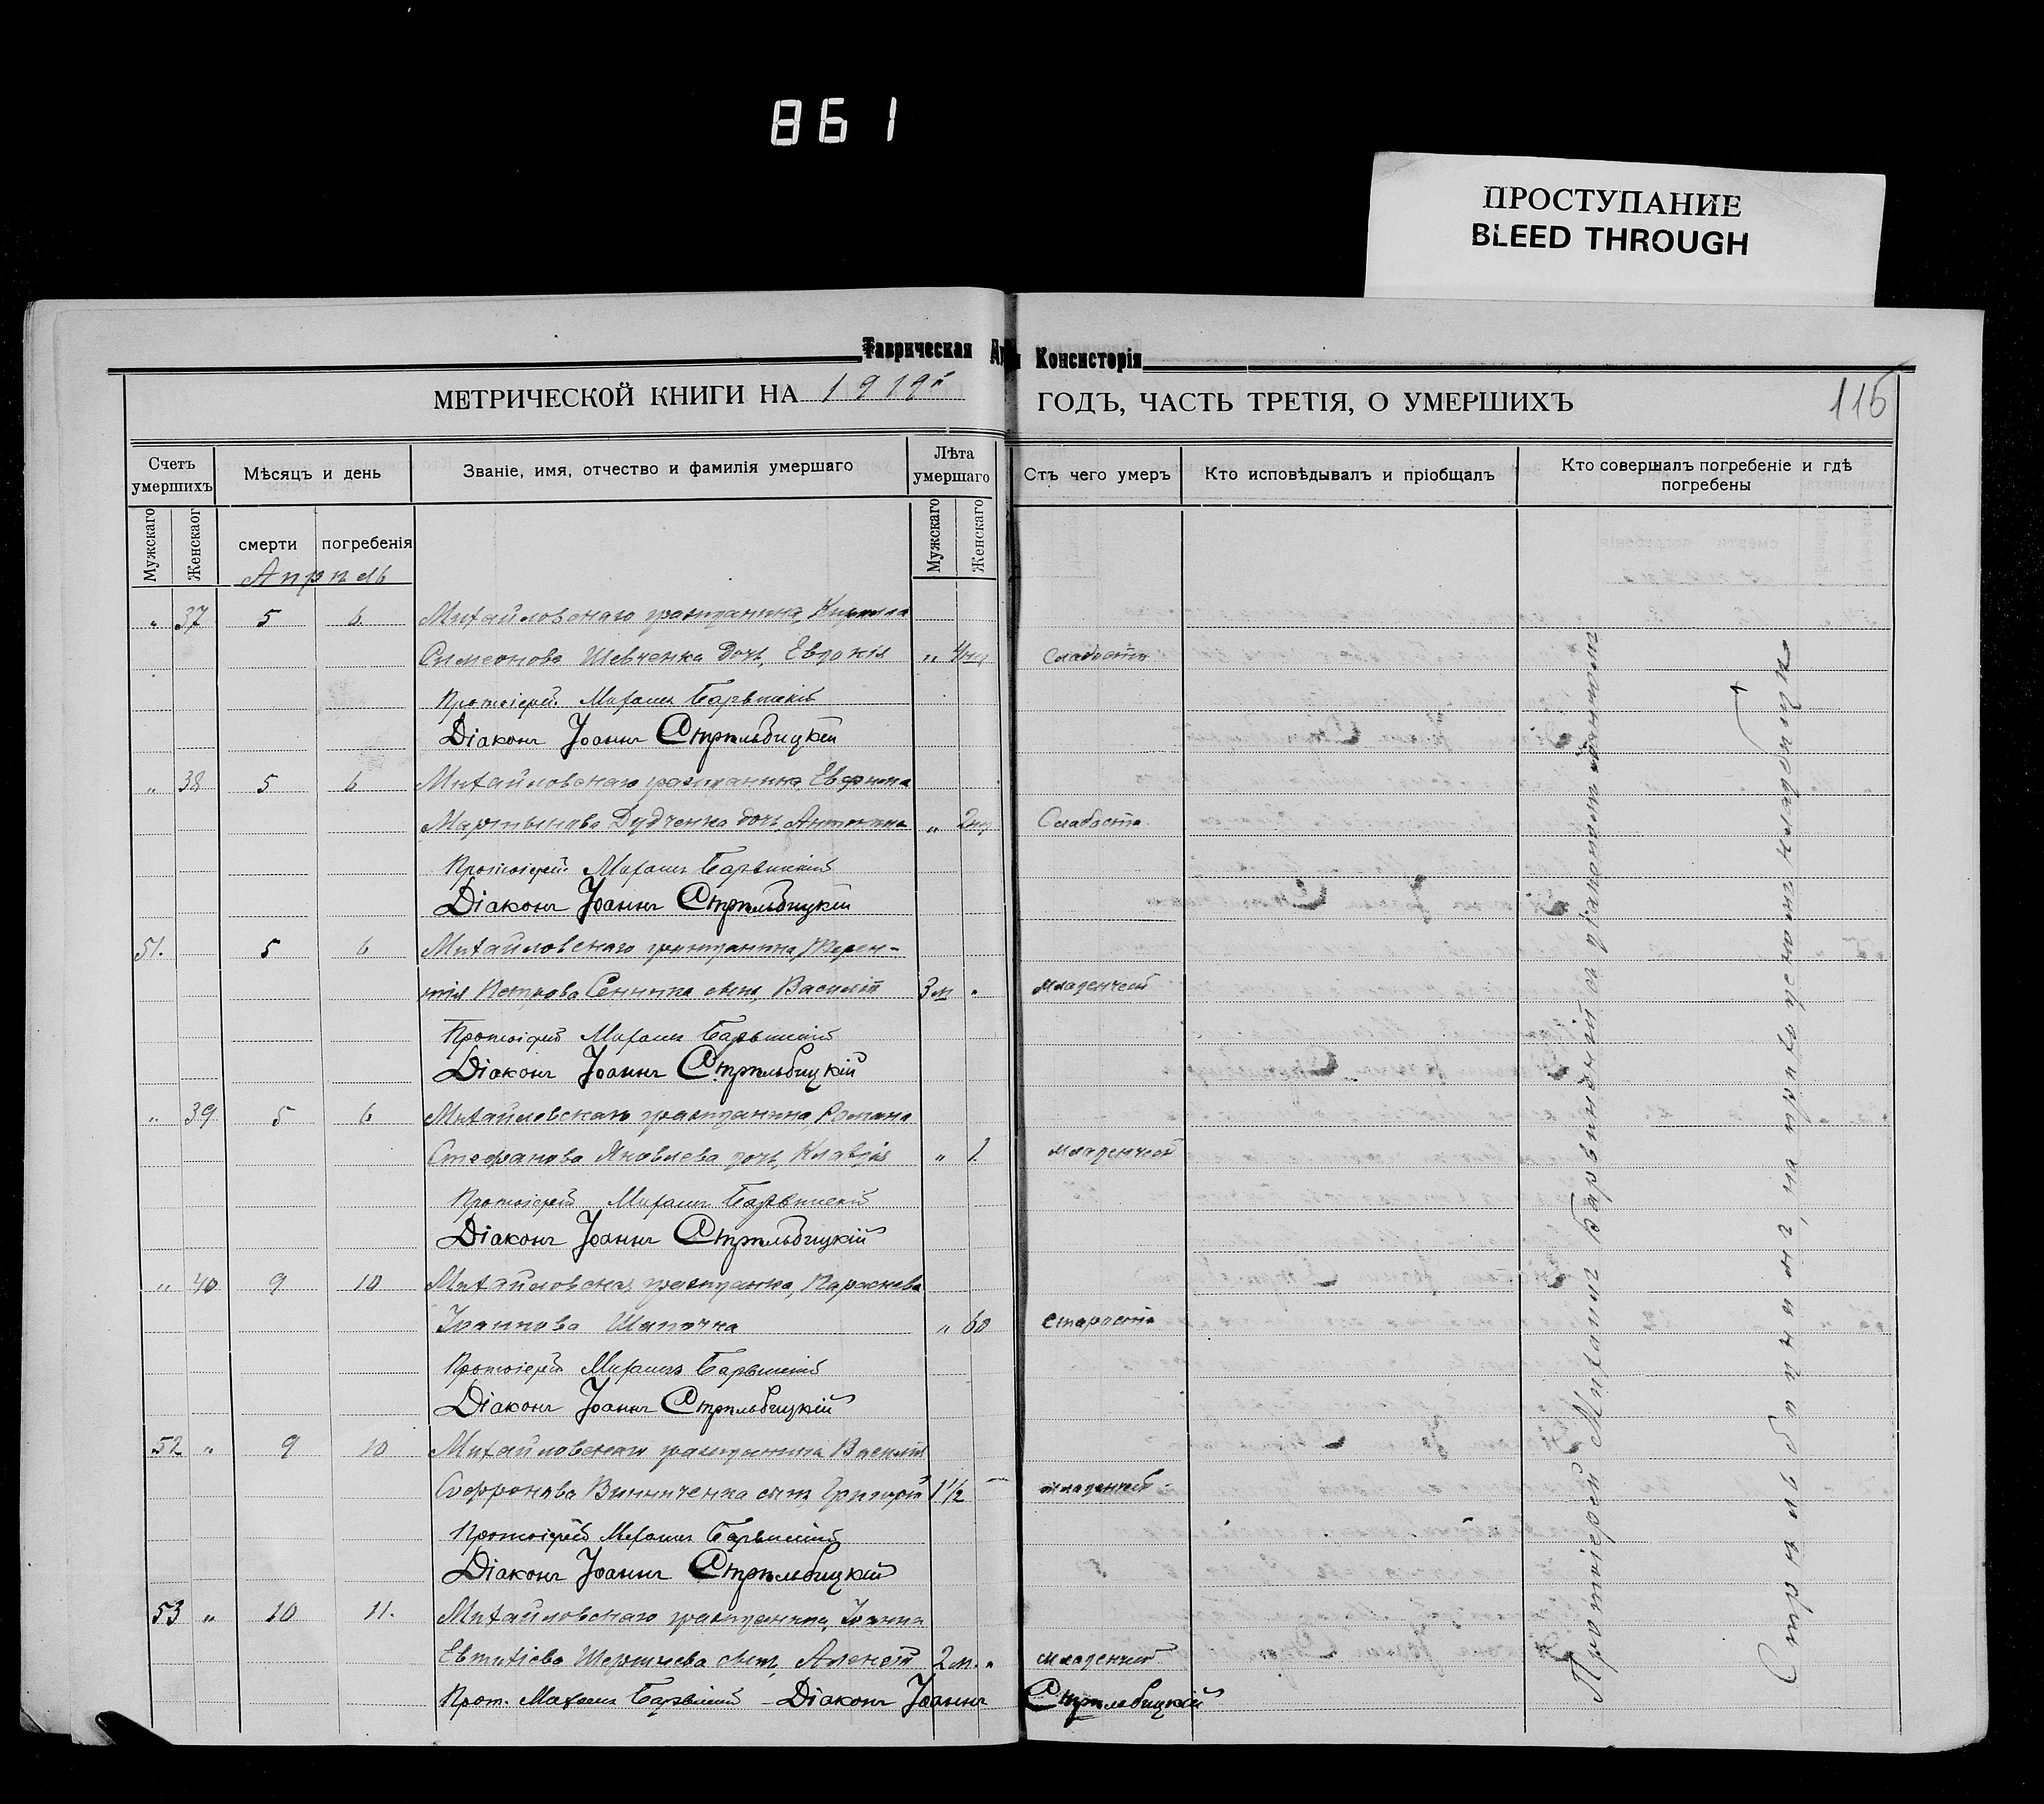 861
ПРОСТУПАНИЕ
BLEED THROUGH
Таврическая Консисторія
МЕТРИЧЕСКОЙ КНИГИ НА 1919й ГОДЪ, ЧАСТЬ ТРЕТІЯ, О УМЕРШИХЪ
115
Счетъ умершихъ
Мѣсяцъ и день
Званіе, имя, отчество и фамилія умершаго
Лѣта умершаго
Стъ чего умеръ
Кто исповѣдывалъ и пріобщалъ
Кто совершалъ погребеніе и гдѣ погребены
Мужскаго Женскаог смерти погребенія Мужскаго Женскаго
Апрѣль
„ 37 5 6 Михайловскаго гражданина, Кирилла
Симеонова Шевченка дочь, Евдокія „ Слабости
Протоіерей Михаилъ Барвинскій
Діаконъ Іоаннъ Стрѣльбицкій
„ 38 5 6 Михайловскаго гражданина Евфима
Мартынова Дудченка дочь, Антонина „ Слабости
Протоіерей Михаилъ Барвинскій
Діаконъ Іоаннъ Стрѣльбицкій
51. 5 6 Михайловскаго гражданина, Терен-
тія Петрова сынъ, Василій 3 м „ младенческ
Протоіерей Михаилъ Барвинскій
Діаконъ Іоаннъ Стрѣльбицкій
„ 39 5 6 Михайловскаго гражданина, Романа
Стефанова Яковлева дочь, Клавдія „ 1. младенческ
Протоіерей Михаилъ Барвинскій
Діаконъ Іоаннъ Стрѣльбицкій
„ 40 9 10 Михайловская гражданка, Параскева
Іоаннова Шапочка „ 60 старости
Протоіерей Михаилъ Барвинскій
Діаконъ Іоаннъ Стрѣльбицкій
52 „ 9 10 Михайловскаго гражданина Василія
Софронова Винниченка сынъ, Григорій 1 1/2 младенческ
Протоіерей Михаилъ Барвинскій
Діаконъ Іоаннъ Стрѣльбицкій
53 „ 10 11. Михайловскаго гражданина, Іоанна
Евтихіева сынъ, Алексѣй 2 м. „ младенческ
Прот. Михаилъ Барвинскій – Діаконъ Іоаннъ Стрѣльбицкій
Протоіерей Михаилъ Барвинскій съ діакономъ Іоанномъ
Стрѣльбицкимъ, на приходскомъ кладбищѣ